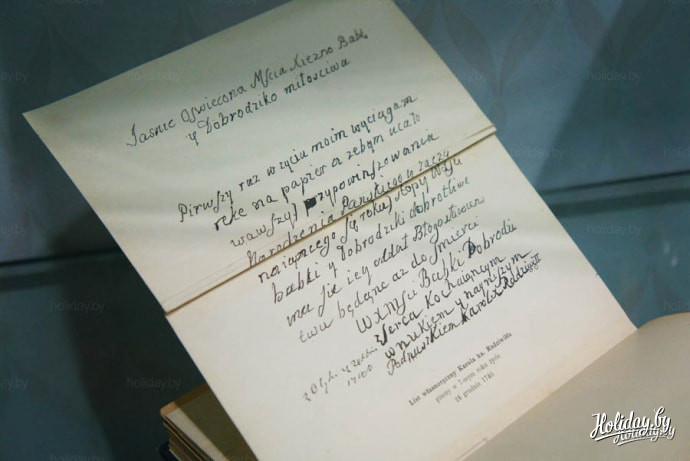 Jaśnie Oswiecona Mścia Xiezno Babk
y Dobrodziko miłościwa
Pirwszy raz w życiu moim wyciągam
reke na papier a żebym ucało
wawszyi przypowinszowania
Narodzenia Pańskiego y zaczy
naiącego się roku, stopy
babki y Dobrodziki dobrotliwe
się iey oddał Błogosławien
twu będąnc aż do śmierci
WXMści Babki Dobrodzi
Serca kochaiąncym
wnukiem y nayniszym
Podnuszkiem Karolx Radziwiłł
List własnoręczny Karola ks. Radziwiłła
pisany w 7-mym roku życia
18 grudnia 1740
Holiday.by
holiday.by